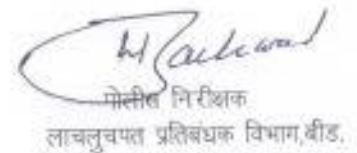 पोलीस निरीक्षक
लाचलुचपत प्रतिबंधक विभाग,बीड.